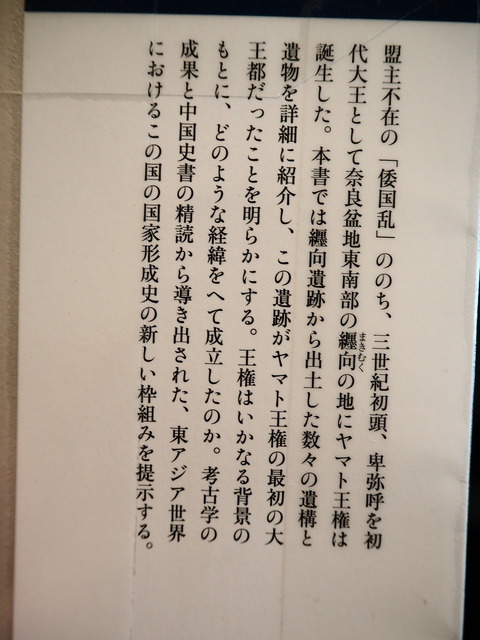 盟主不在の「倭国乱」ののち、三世紀初頭、卑弥呼を初
代大王として奈良盆地東南部の纒向の地にヤマト王権は
まきむく
誕生した。本書では纒向遺跡から出土した数々の遺構と
遺物を詳細に紹介し、この遺跡がヤマト王権の最初の大
王都だったことを明らかにする。王権はいかなる背景の
もとに、どのような経緯をへて成立したのか。考古学の
成果と中国史書の精読から導き出された、東アジア世界
におけるこの国の国家形成史の新しい枠組みを提示する。